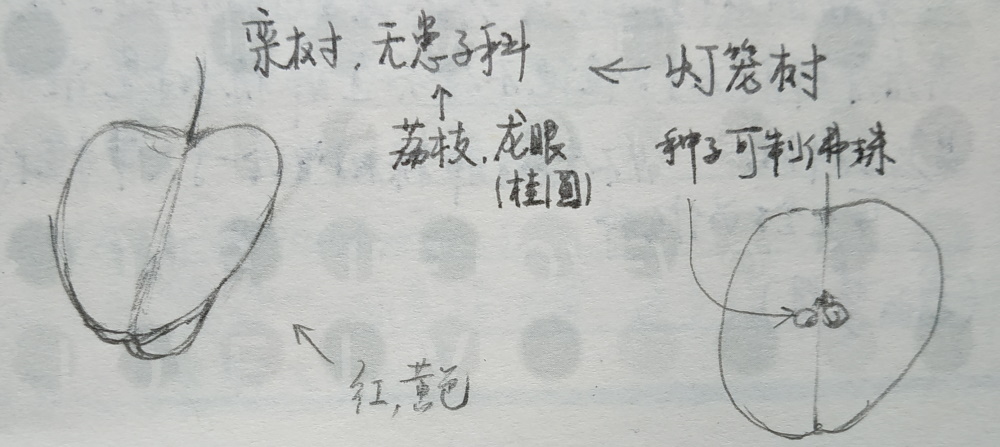 栾树，无患子科
← 灯笼树
↑
荔枝，龙眼
(桂圆)
种子可制佛珠
红，黄色